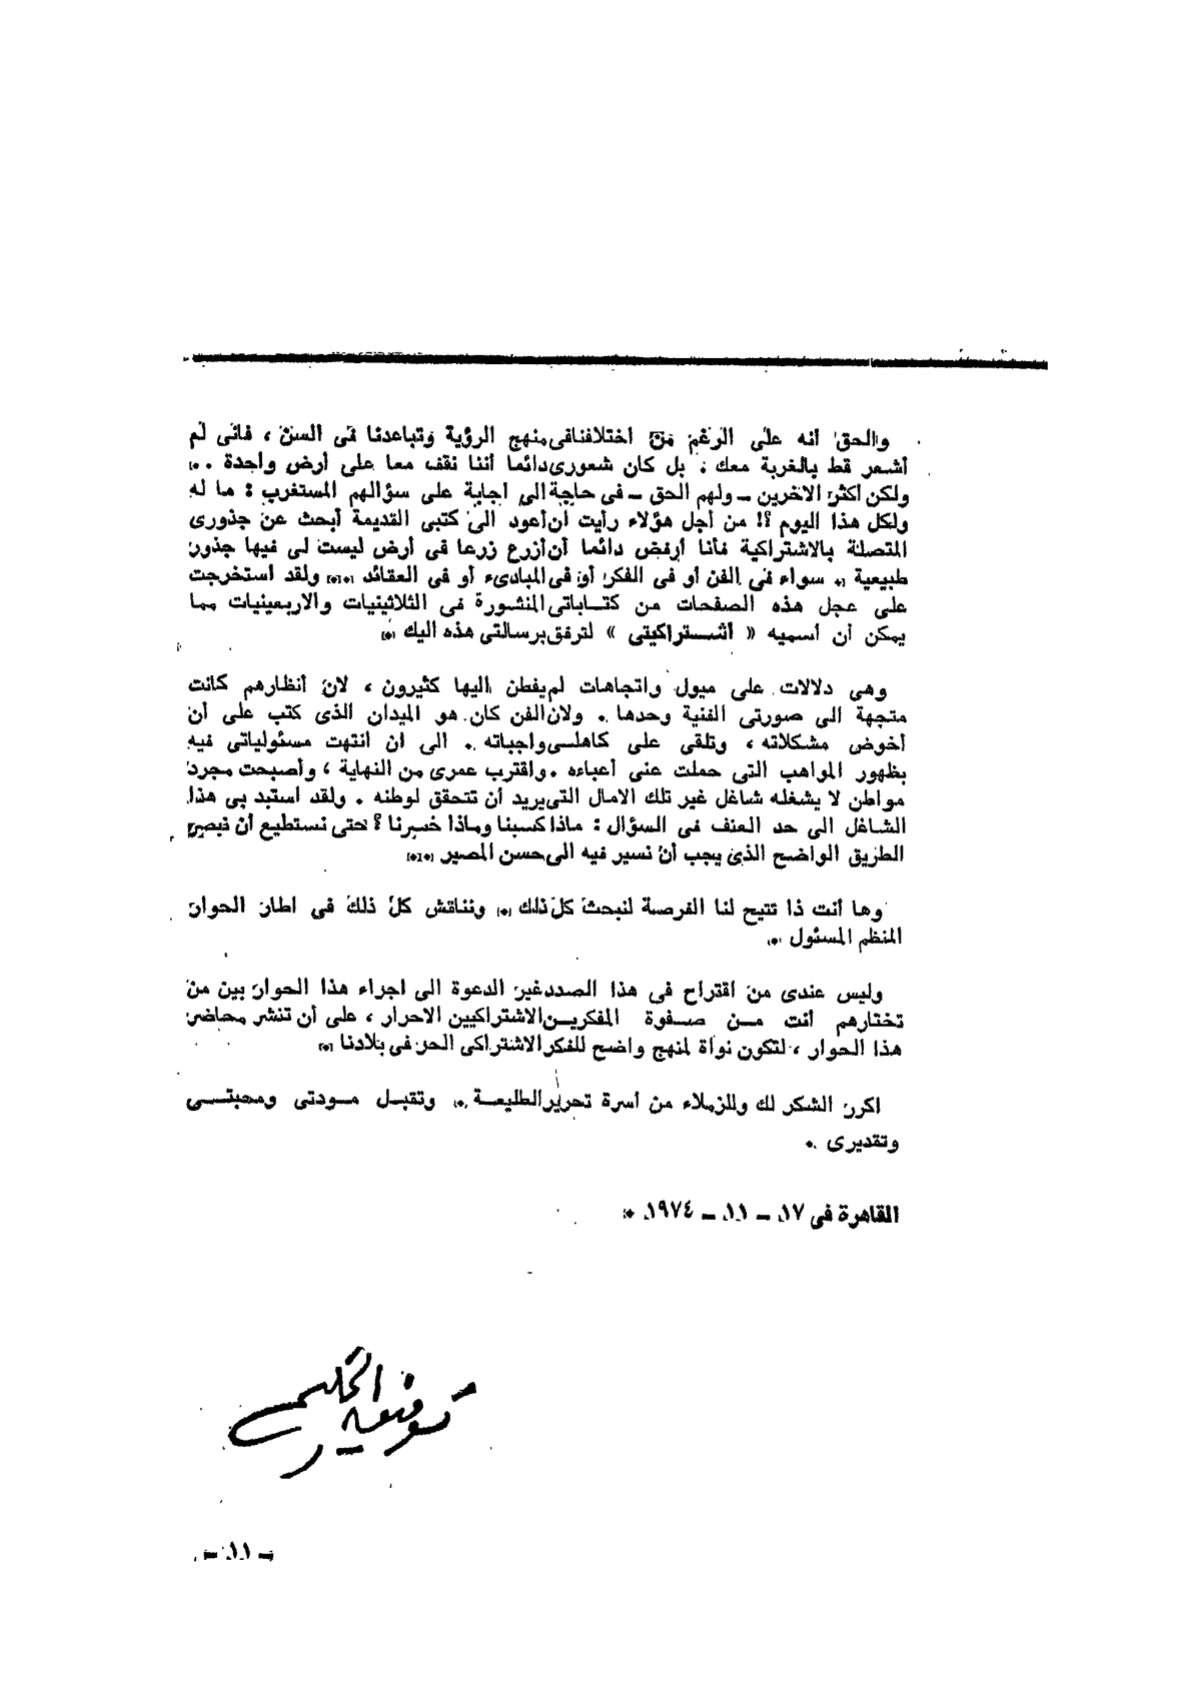 والحق انه على الرغم من اختلافنا فى منهج الرؤية وتباعدنا فى السن ، فانى لم
أشعر قط بالغربة معك ، بل كان شعورى دائما أننا نقف معا على أرض واحدة ..
ولكن أكثر الاخرين ــ ولهم الحق ــ فى حاجة الى اجابة على سؤالهم المستغرب : ما له
ولكل هذا اليوم ؟! من أجل هؤلاء رأيت أن أعود الى كتبى القديمة أبحث عن جذورى
المتصلة بالاشتراكية فأنا أرفض دائما أن أزرع زرعا فى أرض ليست لى فيها جذور
طبيعية . سواء فى الفن أو فى الفكر أو فى المبادىء أو فى العقائد .. ولقد استخرجت
على عجل هذه الصفحات من كتاباتى المنشورة فى الثلاثينيات والاربعينيات مما
يمكن أن أسميه « اشتراكيتى » لترفق برسالتى هذه اليك .
وهى دلالات على ميول واتجاهات لم يفطن اليها كثيرون ، لان أنظارهم كانت
متجهة الى صورتى الفنية وحدها . ولان الفن كان هو الميدان الذى كتب على أن
أخوض مشكلاته ، وتلقى على كاهلى واجباته . الى ان انتهت مسئولياتى فيه
بظهور المواهب التى حملت عنى أعباءه . واقترب عمرى من النهاية ، وأصبحت مجرد
مواطن لا يشغله شاغل غير تلك الامال التى يريد أن تتحقق لوطنه . ولقد استبد بى هذا
الشاغل الى حد العنف فى السؤال : ماذا كسبنا وماذا خسرنا ؟ حتى نستطيع أن نبصر
الطريق الواضح الذى يجب أن نسير فيه الى حسن المصير ..
وها أنت ذا تتيح لنا الفرصة لنبحث كل ذلك . ونناقش كل ذلك فى اطار الحوار
المنظم المسئول .
وليس عندى من اقتراح فى هذا الصدد غير الدعوة الى اجراء هذا الحوار بين من
تختارهم أنت من صفوة المفكرين الاشتراكيين الاحرار ، على أن تنشر محاضر
هذا الحوار ، لتكون نواة لمنهج واضح للفكر الاشتراكى الحر فى بلادنا .
اكرر الشكر لك وللزملاء من أسرة تحرير الطليعة . وتقبل مودتى ومحبتى
وتقديرى .
القاهرة فى ١٧ ــ ١١ ــ ١٩٧٤ .
توفيق الحكيم
ــ ١١ ــ